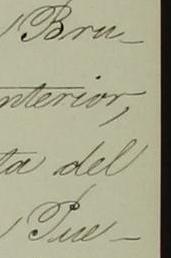 Bru-
nterior,
ta del
Pue-